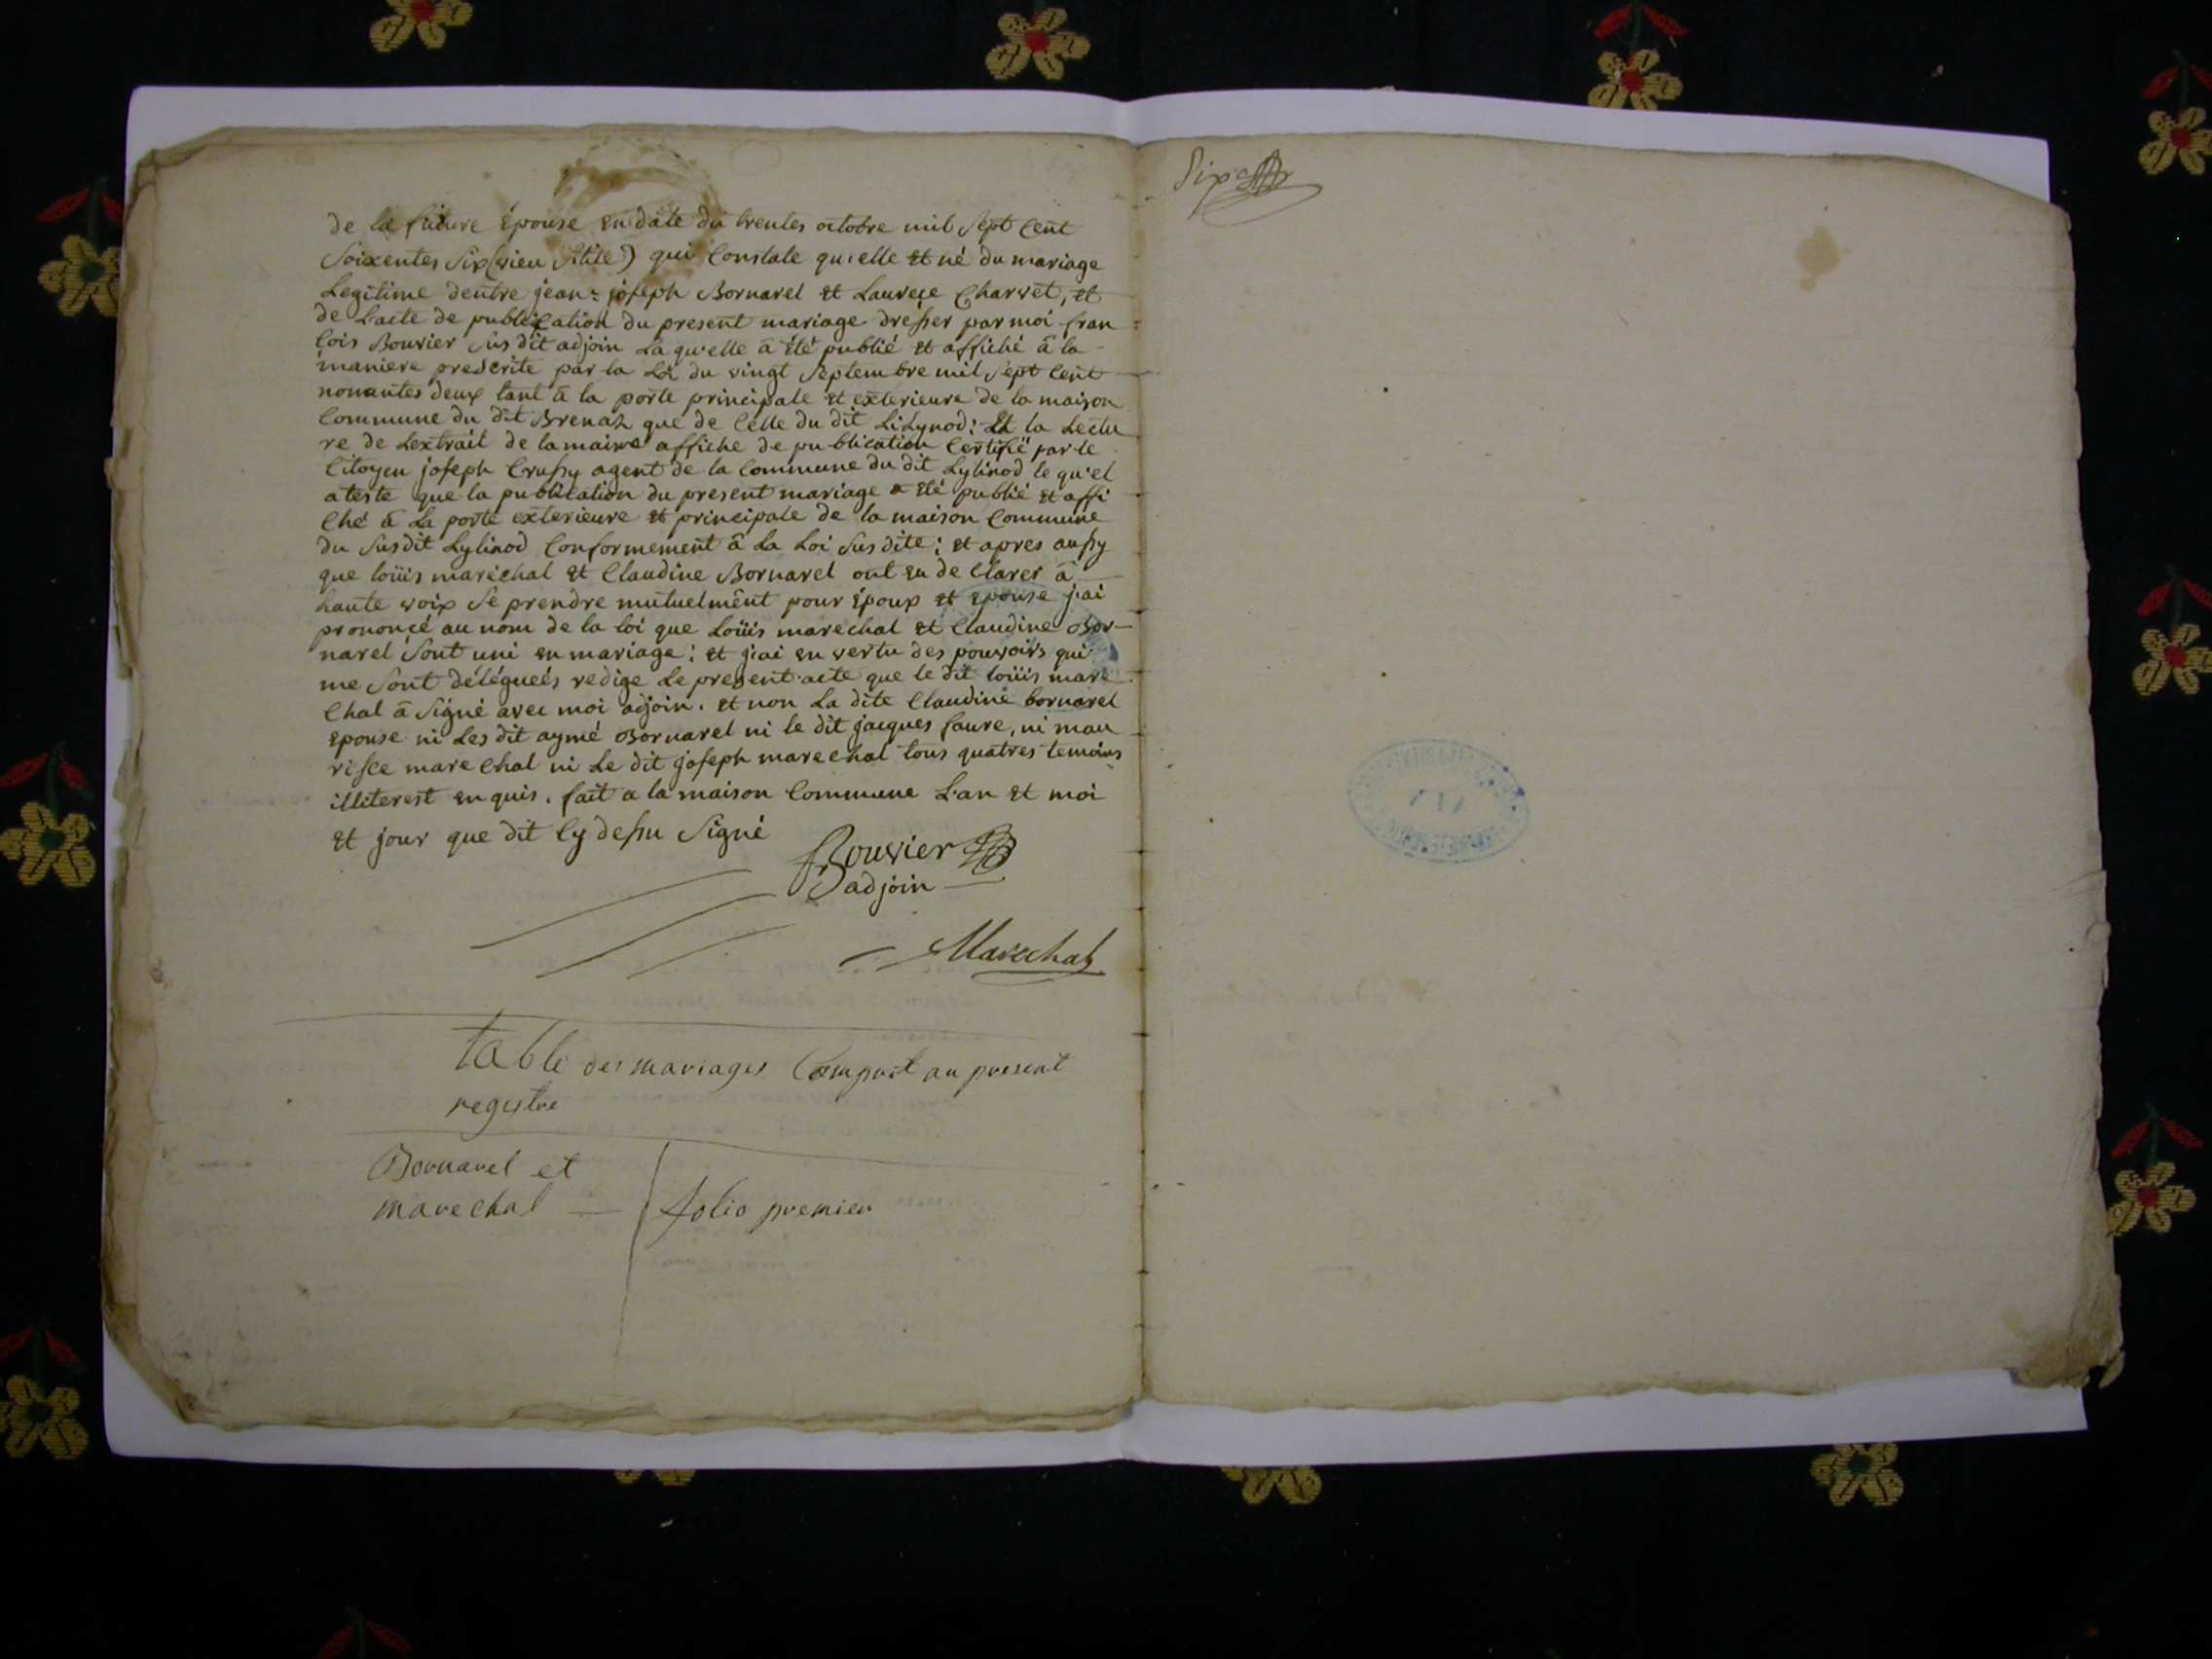 de la future épouse en date du trentes octobre mil sept cent
soixentes six (vieu stile) qui constate qu'elle et né du mariage
Legitime dentre jean=joseph Bornarel et Laurece Charvet, et
de Lacte de publication du present mariage dresser par moi fran
cois Bouvier susdit adjoin La qu'elle à été publié et affiché à la
maniere prescrite par la Loi du vingt septembre mil sept cent
nonantes deux tant à la porte principale et exterieure de la maison
commune du dit Brenaz que de celle du dit Lilynod; Et la Lectu
re de Lextrait de la maime affiche de publication certifié par le
citoyen joseph Crussy agent de la commune du dit Lylinod le qu'el
ateste que la publication du present mariage a été publié et affi
ché à La porte exterieure et principale de la maison commune
du susdit Lylinod conformement à La Loi susdite; et apres aussy
que loüis maréchal et Claudine Bornarel ont eu de clarer à
haute voix se prendre mutuelment pour époux et epouse j'ai
prononcé au nom de la loi que Loüis marechal et Claudine Bor-
narel sont uni en mariage; et j'ai en vertu des pouvoirs qui
me sont déléguéés redige Le present acte que le dit loüis mare
chal à signé avec moi adjoin. et non La dite Claudine bornarel
epouse ni Les dit aymé Bornarel ni le dit jacques faure, ni mau
risce marechal ni Le dit joseph marechal tous quatres temoins
illiterest enquis. fait a la maison commune L'an et moi
et jour que dit cy dessu signé
Bouvier
adjoin
Marechal
table des mariages Comprit au present
registre
Bornarel et
marechal — folio premier
six